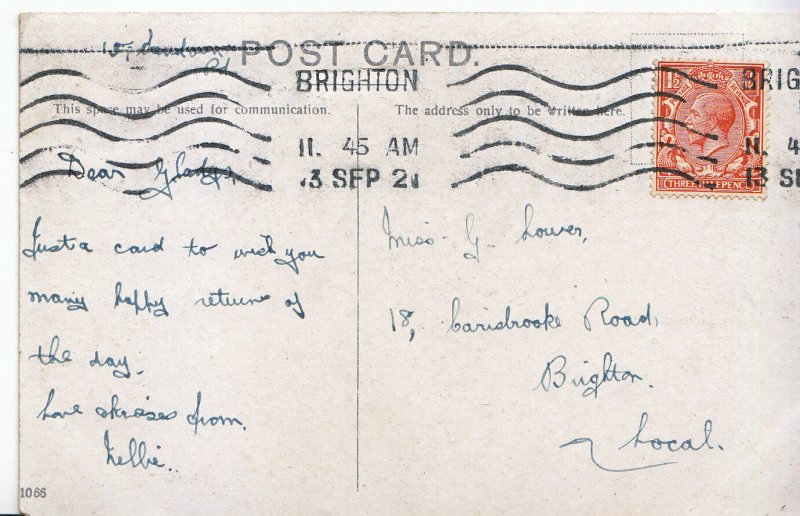 15,
Rd
POST CARD.
BRIGHTON
11. 45 AM
13 SEP 21
BRIG
11. 4
13 SE
This space may be used for communication.
The address only to be written here.
1½
THREE HALFPENCE
Dear Gladys,
Just a card to wish you
many happy returns of
the day.
Love & kisses from
Nellie..
Miss G. Lower,
18, Carisbrooke Road,
Brighton.
Local.
1066